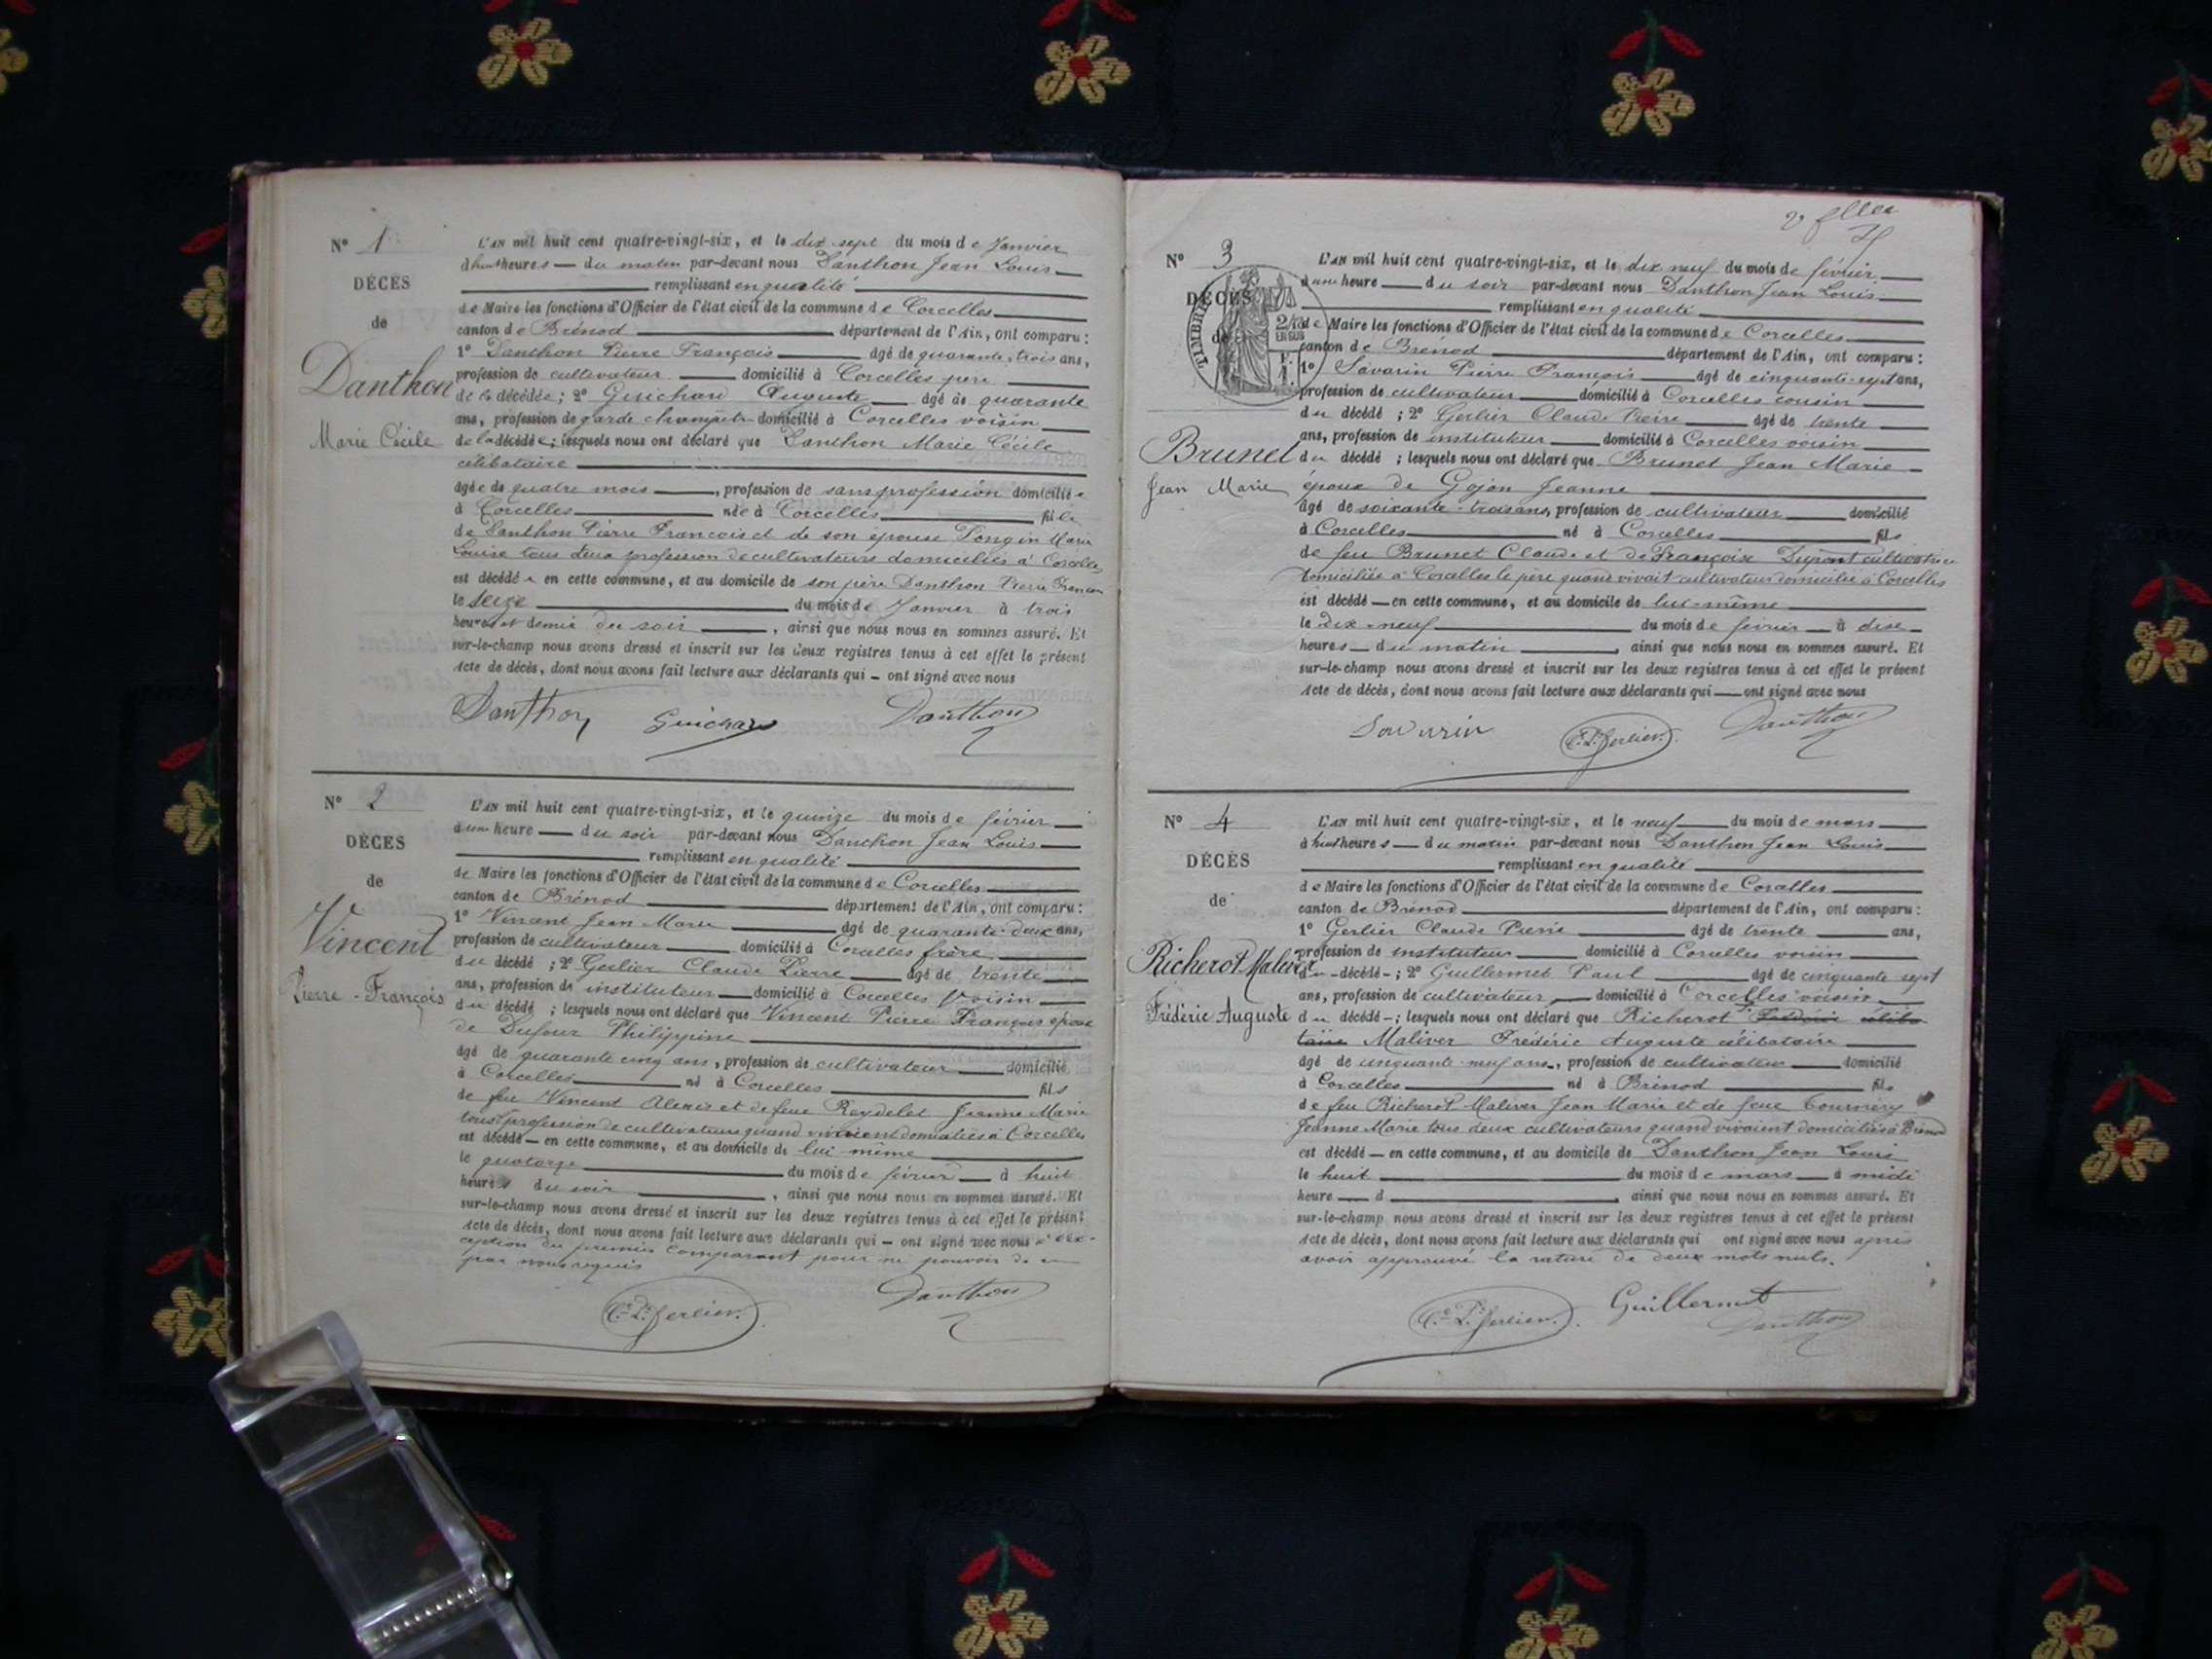 N° 1
DÉCÈS
de
Danthon
Marie Cécile
L'AN mil huit cent quatre-vingt-six, et le dix sept du mois de Janvier
à huit heures — du matin par-devant nous Danthon Jean Louis
remplissant en qualité
de Maire les fonctions d'Officier de l'état civil de la commune de Corcelles
canton de Brénod département de l'Ain, ont comparu :
1° Danthon Pierre François âgé de quarante-trois ans,
profession de cultivateur domicilié à Corcelles père
de la décédée ; 2° Guichard Auguste âgé de quarante
ans, profession de garde champêtre domicilié à Corcelles voisin
de la décédée ; lesquels nous ont déclaré que Danthon Marie Cécile
célibataire
âgée de quatre mois, profession de sans profession domiciliée
à Corcelles née à Corcelles fille
de Danthon Pierre François et de son épouse Longin Marie
Louise tous deux profession de cultivateurs domiciliés à Corcelles
est décédée en cette commune, et au domicile de son père Danthon Pierre François
le seize du mois de Janvier à trois
heures et demie du soir, ainsi que nous nous en sommes assuré. Et
sur-le-champ nous avons dressé et inscrit sur les deux registres tenus à cet effet le présent
Acte de décès, dont nous avons fait lecture aux déclarants qui — ont signé avec nous
Danthon Guichard Danthon
N° 2
DÉCÈS
de
Vincent
Pierre-François
L'AN mil huit cent quatre-vingt-six, et le quinze du mois de février
à une heure — du soir par-devant nous Danthon Jean Louis
remplissant en qualité
de Maire les fonctions d'Officier de l'état civil de la commune de Corcelles
canton de Brénod département de l'Ain, ont comparu :
1° Vincent Jean Marie âgé de quarante-deux ans,
profession de cultivateur domicilié à Corcelles frère
du décédé ; 2° Gerlier Claude Pierre âgé de trente
ans, profession de instituteur domicilié à Corcelles voisin
du décédé ; lesquels nous ont déclaré que Vincent Pierre François époux
de Dufour Philippine
âgé de quarante cinq ans, profession de cultivateur domicilié
à Corcelles né à Corcelles fils
de feu Vincent Alexis et de feue Reydelet Jeanne Marie
tous profession de cultivateurs quand vivaient domiciliés à Corcelles
est décédé — en cette commune, et au domicile de lui même
le quatorze du mois de février — à huit
heures du soir, ainsi que nous nous en sommes assuré. Et
sur-le-champ nous avons dressé et inscrit sur les deux registres tenus à cet effet le présent
Acte de décès, dont nous avons fait lecture aux déclarants qui — ont signé avec nous à l'ex-
ception du premier comparant pour ne pouvoir de ce
par nous requis
Ce Pe Gerlier. Danthon
N° 3
DÉCÈS
de
TIMBRE
Brunet
Jean Marie
L'AN mil huit cent quatre-vingt-six, et le dix neuf du mois de février
à une heure — du soir par-devant nous Danthon Jean Louis
remplissant en qualité
de Maire les fonctions d'Officier de l'état civil de la commune de Corcelles
canton de Brénod département de l'Ain, ont comparu :
1° Savarin Pierre François âgé de cinquante-sept ans,
profession de cultivateur domicilié à Corcelles cousin
du décédé ; 2° Gerlier Claude Pierre âgé de trente
ans, profession de instituteur domicilié à Corcelles voisin
du décédé ; lesquels nous ont déclaré que Brunet Jean Marie
époux de Gojon Jeanne
âgé de soixante-trois ans, profession de cultivateur domicilié
à Corcelles né à Corcelles fils
de feu Brunet Claude et de Françoise Dupont cultivatrice
domiciliée à Corcelles le père quand vivait cultivateur domicilié à Corcelles
est décédé — en cette commune, et au domicile de lui-même
le dix-neuf du mois de février — à dix
heures — du matin, ainsi que nous nous en sommes assuré. Et
sur-le-champ nous avons dressé et inscrit sur les deux registres tenus à cet effet le présent
Acte de décès, dont nous avons fait lecture aux déclarants qui — ont signé avec nous
Savarin Ce Pe Gerlier. Danthon
N° 4
DÉCÈS
de
Richerot Maliver
Frédéric Auguste
L'AN mil huit cent quatre-vingt-six, et le neuf du mois de mars
à huit heures — du matin par-devant nous Danthon Jean Louis
remplissant en qualité
de Maire les fonctions d'Officier de l'état civil de la commune de Corcelles
canton de Brénod département de l'Ain, ont comparu :
1° Gerlier Claude Pierre âgé de trente ans,
profession de instituteur domicilié à Corcelles voisin
du décédé ; 2° Guillermet Paul âgé de cinquante sept
ans, profession de cultivateur domicilié à Corcelles voisin
du décédé ; lesquels nous ont déclaré que Richerot Frédéric céliba
taire Maliver Frédéric Auguste célibataire
âgé de cinquante-neuf ans, profession de cultivateur domicilié
à Corcelles né à Brénod fils
de feu Richerot Maliver Jean Marie et de feue Tournery
Jeanne Marie tous deux cultivateurs quand vivaient domiciliés à Brénod
est décédé — en cette commune, et au domicile de Danthon Jean Louis
le huit du mois de mars — à midi
heure — d, ainsi que nous nous en sommes assuré. Et
sur-le-champ nous avons dressé et inscrit sur les deux registres tenus à cet effet le présent
Acte de décès, dont nous avons fait lecture aux déclarants qui ont signé avec nous après
avoir approuvé la rature de deux mots nuls.
Ce Pe Gerlier. Guillermet Danthon